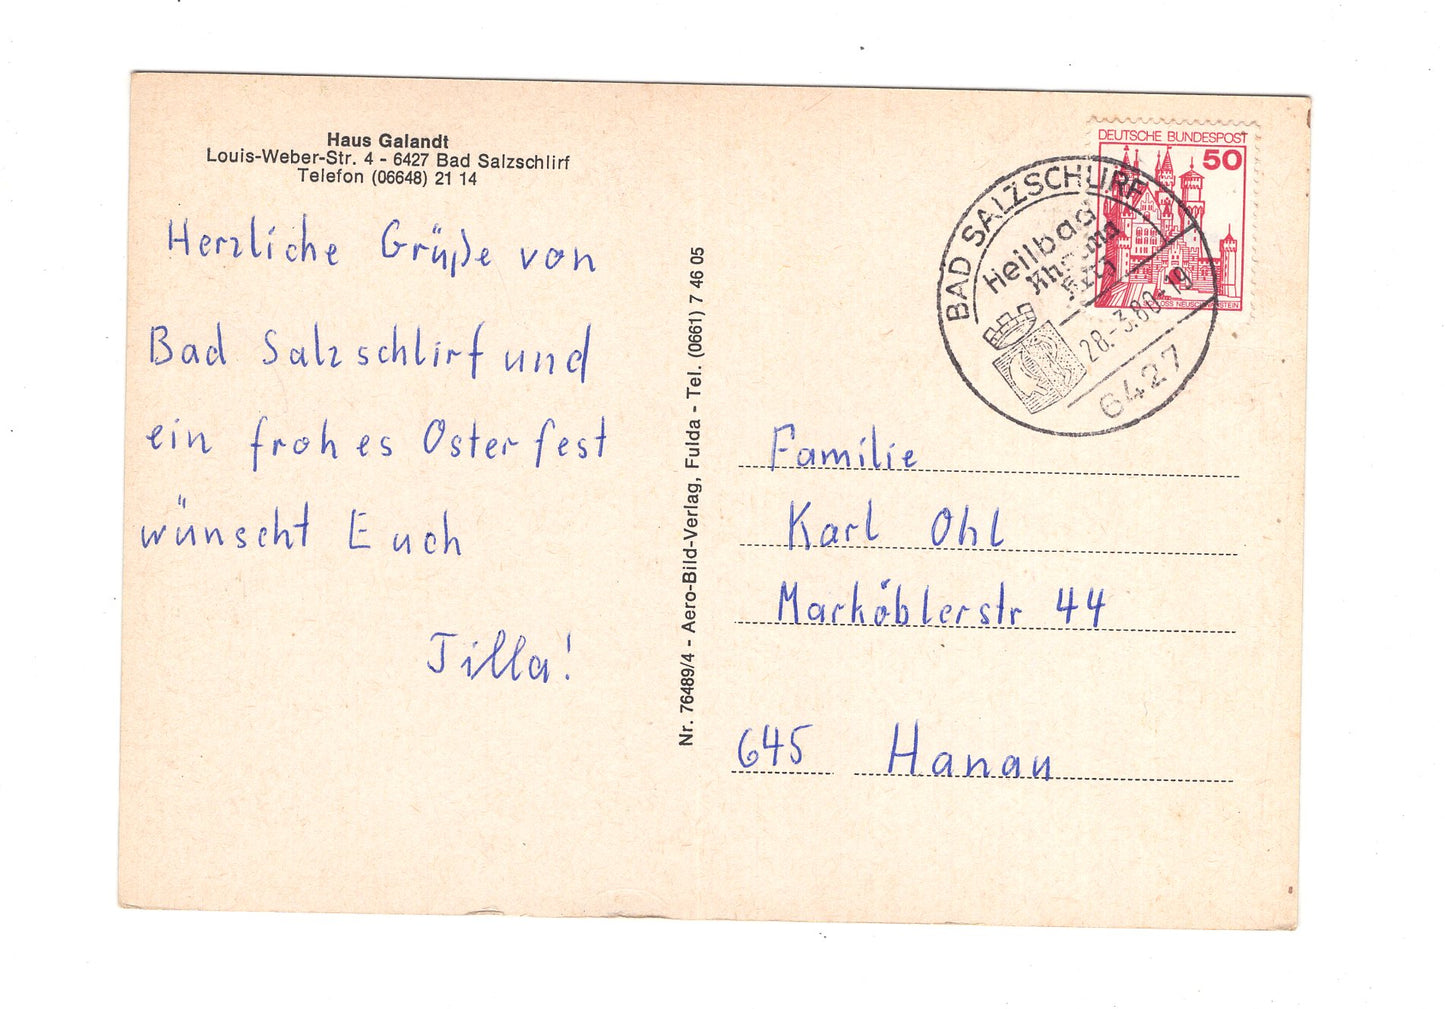 Haus Galandt
Louis-Weber-Str. 4 - 6427 Bad Salzschlirf
Telefon (06648) 21 14
Herzliche Grüße von
Bad Salzschlirf und
ein frohes Osterfest
wünscht Euch
Tilla!
Nr. 76489/4 - Aero-Bild-Verlag, Fulda - Tel. (0661) 7 46 05
DEUTSCHE BUNDESPOST
50
SCHLOSS NEUSCHWANSTEIN
BAD SALZSCHLIRF
Heilbad
28.-3.80-19
6427
Familie
Karl Ohl
Marköblerstr 44
645 Hanau